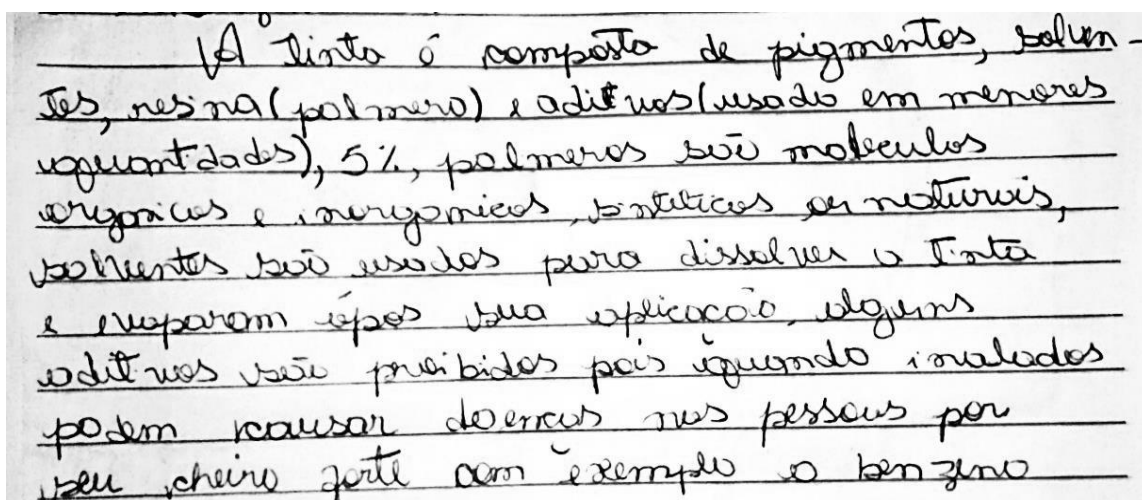 A tinta é composta de pigmentos, solven-
tes, resina (polmero) e aditivos (usado em menores
quantidades), 5%, polmeros são moleculas
organicas e inorganicas, sinteticas ou naturais,
solventes são usados para dissolver a tinta
e evaporam após sua aplicação, alguns
aditivos são proibidos pois quando inalados
podem causar doenças nas pessoas por
seu cheiro forte com exemplo o benzeno